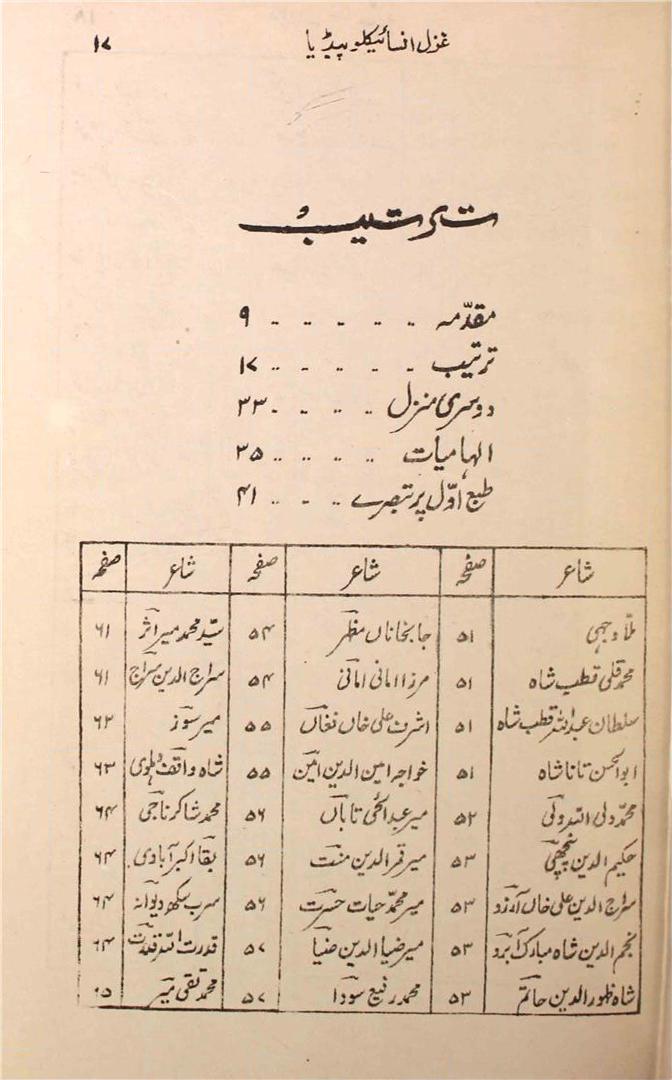 غزل انسائیکلوپیڈیا ۱۷
ترتیب
مقدّمہ ۔۔ ۔۔ ۔۔ ۔۔ ۔۔ ۹
ترتیب ۔۔ ۔۔ ۔۔ ۔۔ ۔۔ ۱۷
دوسری منزل ۔۔ ۔۔ ۔۔ ۔۔ ۳۳
الہامیات ۔۔ ۔۔ ۔۔ ۔۔ ۳۵
طبع اوّل پر تبصرے ۔۔ ۔۔ ۔۔ ۴۱
شاعر صفحہ شاعر صفحہ شاعر صفحہ
ملّا وجہی ۵۱ جانجاناں مظہر ۵۴ سیّد محمد میر اثر ۶۱
محمد قلی قطب شاہ ۵۱ مرزا امانی امانی ۵۴ سراج الدین سراج ۶۱
سلطان عبداللہ قطب شاہ ۵۱ اشرف علی خاں فغاں ۵۵ میر سوز ۶۲
ابوالحسن تانا شاہ ۵۱ خواجہ امین الدین امین ۵۵ شاہ واقف دہلوی ۶۳
محمد ولی اللہ ولی ۵۲ میر عبدالحئی تاباں ۵۶ محمد شاکر ناجی ۶۴
حکیم الدین ۵۳ میر قمر الدین منت ۵۶ بقا اکبر آبادی ۶۴
سراج الدین علی خاں آرزو ۵۳ میر محمد حیات حسرت ۵۶ سرب سکھ دیوانہ ۶۴
نجم الدین شاہ مبارک آبرو ۵۳ میر ضیا الدین ضیا ۵۷ قدرت اللہ قدرت ۶۴
شاہ ظہور الدین حاتم ۵۳ محمد رفیع سودا ۵۷ محمد تقی میر ۶۵